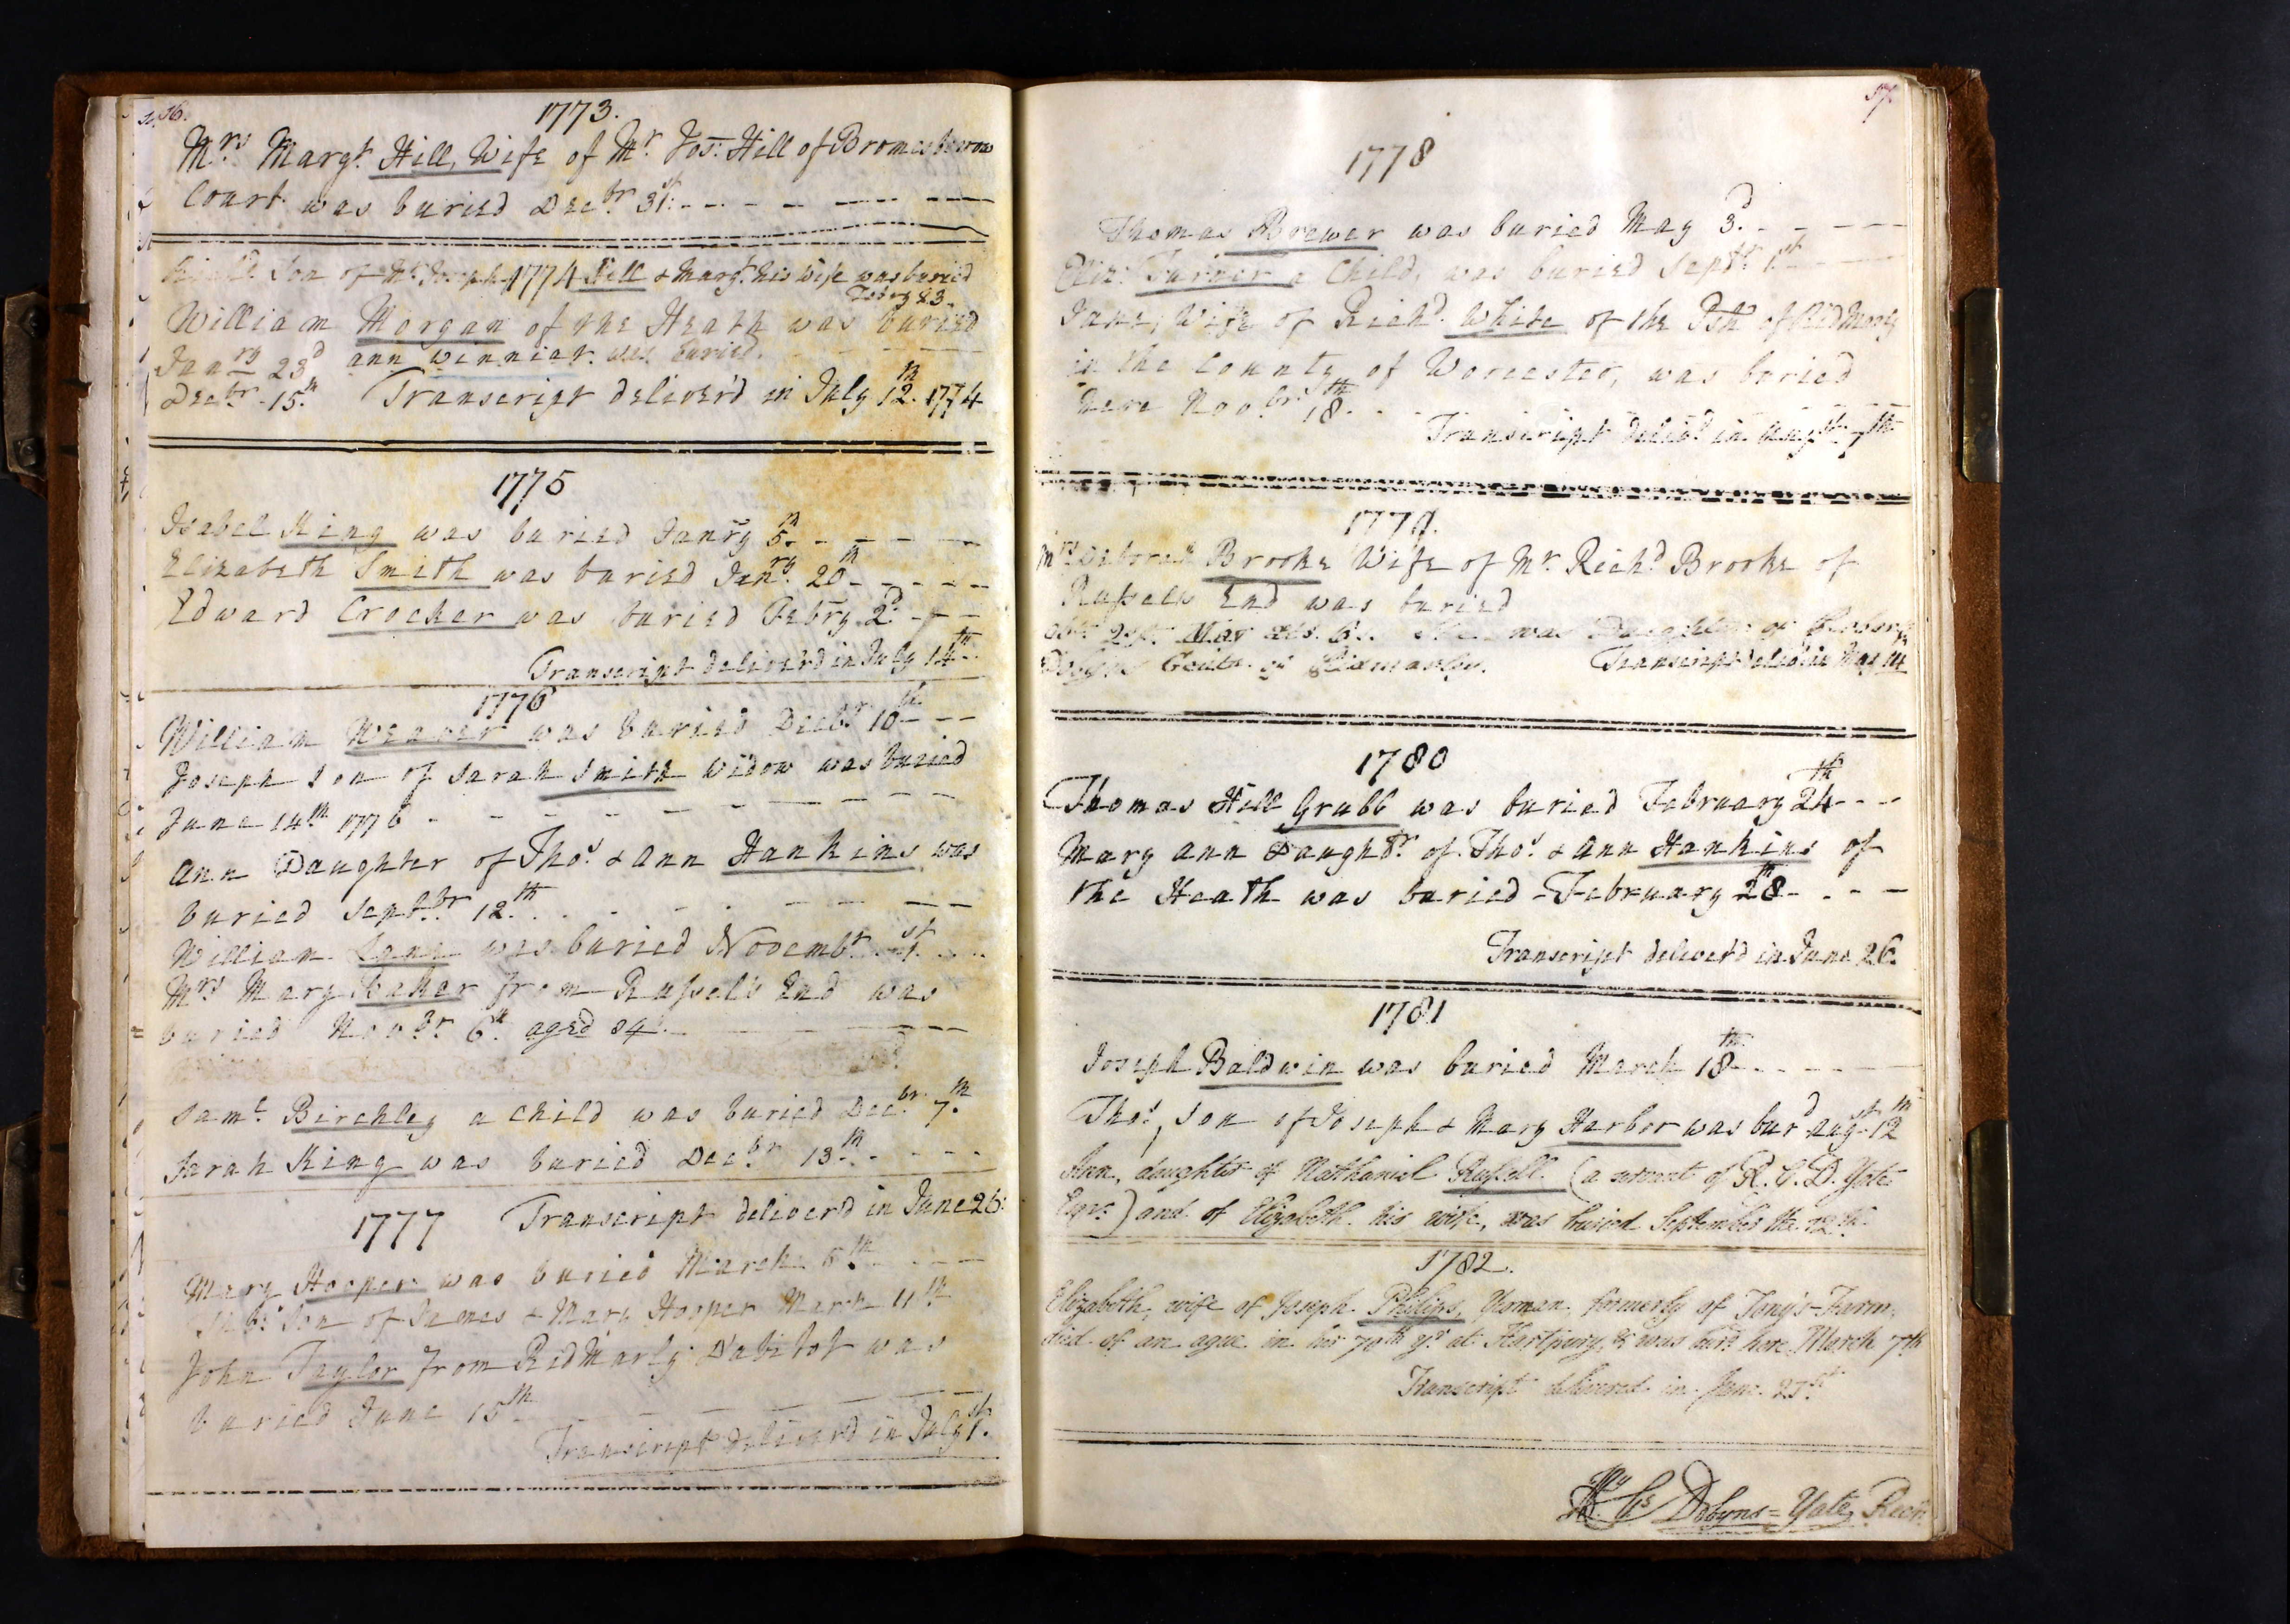 56.
1773.
Mrs Margt. Hill, Wife of Mr. Jos: Hill of Bromesberrow
Court was buried Decbr. 31st.
Son of Mr. Joseph 1774 Hill & Margt. his Wife was buried
Febry 23.
William Morgan of the Heath was buried
Janry 23d ann winniat. was buried.
Decbr. 15th. Transcript deliver'd in July 12th. 1774
1775
Isabel King was buried Janry 5th.
Elizabeth Smith was buried Janry. 20th
Edward Crocker was buried Febry. 2d.
Transcript deliver'd in July 14th
1776
William Weaver was buried Decbr. 10th
Joseph Son of Sarah Smith Widow was buried
June 14th 1776
Ann Daughter of Thos. & Ann Hankins was
buried Septbr 12th.
William Lane was buried Novembr. 1st.
Mrs Mary Baker from Russels End was
buried Novbr. 6th. aged 84.
Saml. Birchley a Child was buried Decbr. 7th.
Sarah King was buried Decbr 13th.
1777 Transcript deliver'd in June 26:
Mary Hooper was buried March 6th.
Son of James & Mary Hooper March 11th
John Taylor from RedMarly Dabitot was
buried June 15th
Transcript deliver'd in July 1st.
57.
1778
Thomas Brewer was buried May 3d.
Eliz: Turner a Child, was buried Septbr 1st.
Jane, Wife of Richd. White of the Psh of RedMarly
in the County of Worcester, was buried
here Novbr. 18th.
Transcript deliv'd in Augst. 7th
1779.
Mrs Deborah Brooke Wife of Mr. Richd Brooke of
Russels End was buried
She was Daughter of
Transcript deliv'd in May 14
1780
Thomas Hill Grubb was buried February 24th
Mary Ann Daughtr. of Thos. & Ann Hankins of
the Heath was buried February 28th
Transcript deliver'd in June 26.
1781
Joseph Baldwin was buried March 18th
Thos., Son of Joseph & Mary Harbor was burd Augst 12th
Ann, daughter of Nathaniel Russell (a servant of R. C. D. Yate
Eqre.) and of Elizabeth his wife, was buried September the 12th.
1782.
Elizabeth, wife of Joseph Philips, Yeoman, formerly of Tony's-Farm,
died of an ague in her 70th yr. at Hartpury, & was burd here March 7th
Transcript delivered in June 27th
Dobyns=Yate, Rectr.